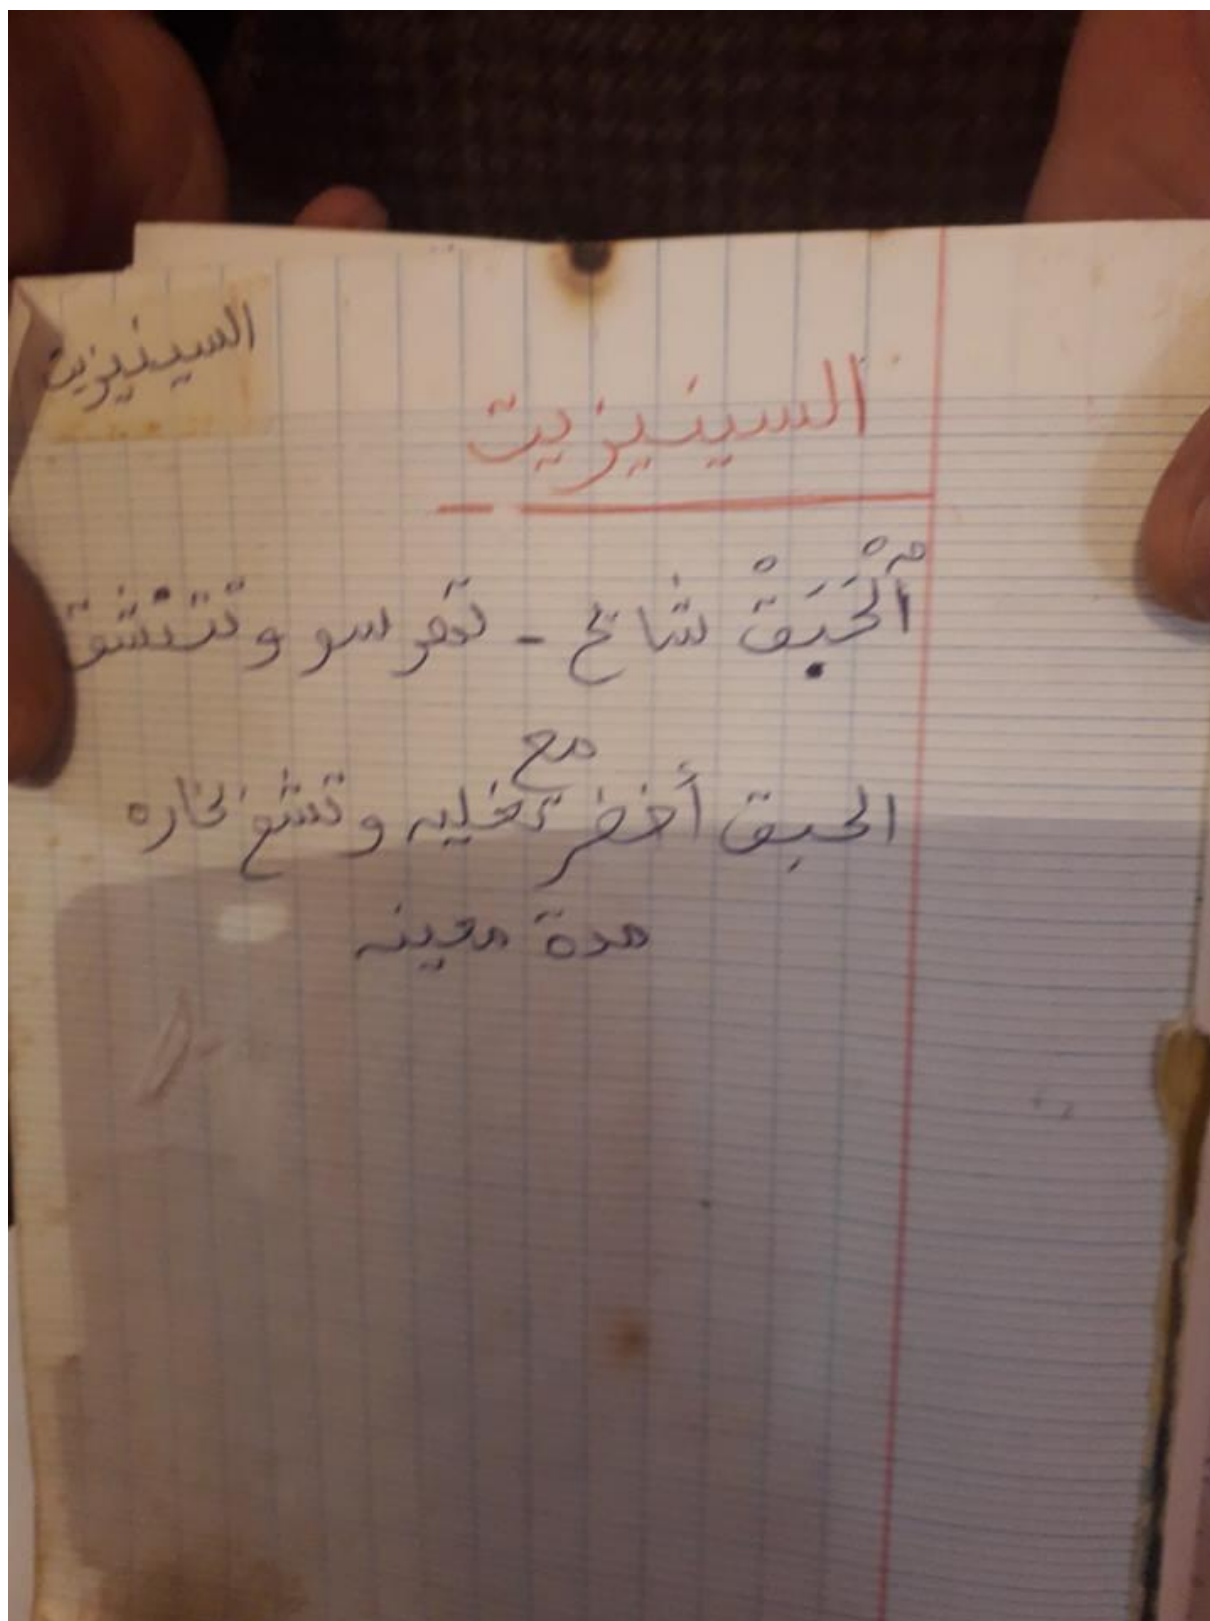 السينيزيت
السينيزيت
ٱلْحَبَقْ شايح - تهرسو وتتنشق
مع
الحبق أخضر تغليه وتشم بخاره
مدة معينه